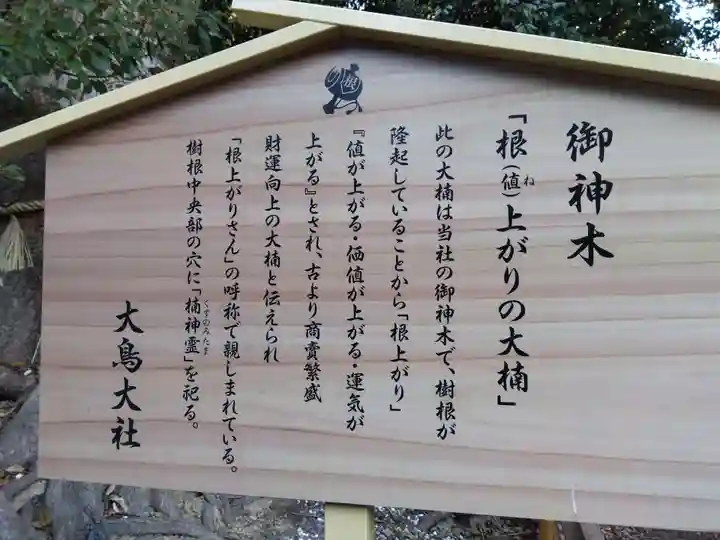 御神木
「根(値)上がりの大楠」
ね
此の大楠は当社の御神木で、樹根が
隆起していることから「根上がり」
『値が上がる・価値が上がる・運気が
上がる』とされ、古より商賣繁盛
財運向上の大楠と伝えられ
「根上がりさん」の呼称で親しまれている。
樹根中央部の穴に「楠神霊」を祀る。
くすのみたま
大鳥大社
根